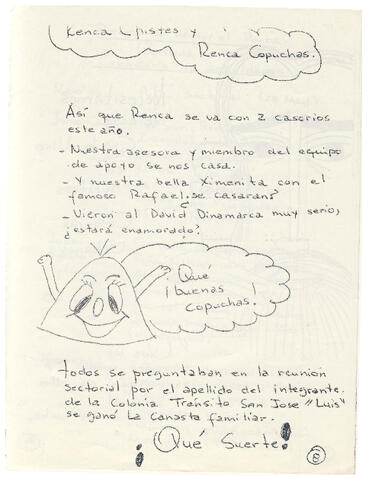 Renca Chistes y
Renca Copuchas.
Así que Renca se va con 2 casorios
este año.
- Nuestra asesora y miembro del equipo
de apoyo se nos casa.
- Y nuestra bella Ximenita con el
famoso Rafael, ¿se casarán?
- Vieron al David Dinamarca muy serio,
¿estará enamorado?
¡Qué
¡buenas !
copuchas.
todos se preguntaban en la reunión
sectorial por el apellido del integrante
de la Colonia Tránsito San José "Luis"
se ganó la canasta familiar.
¡Qué Suerte!
8